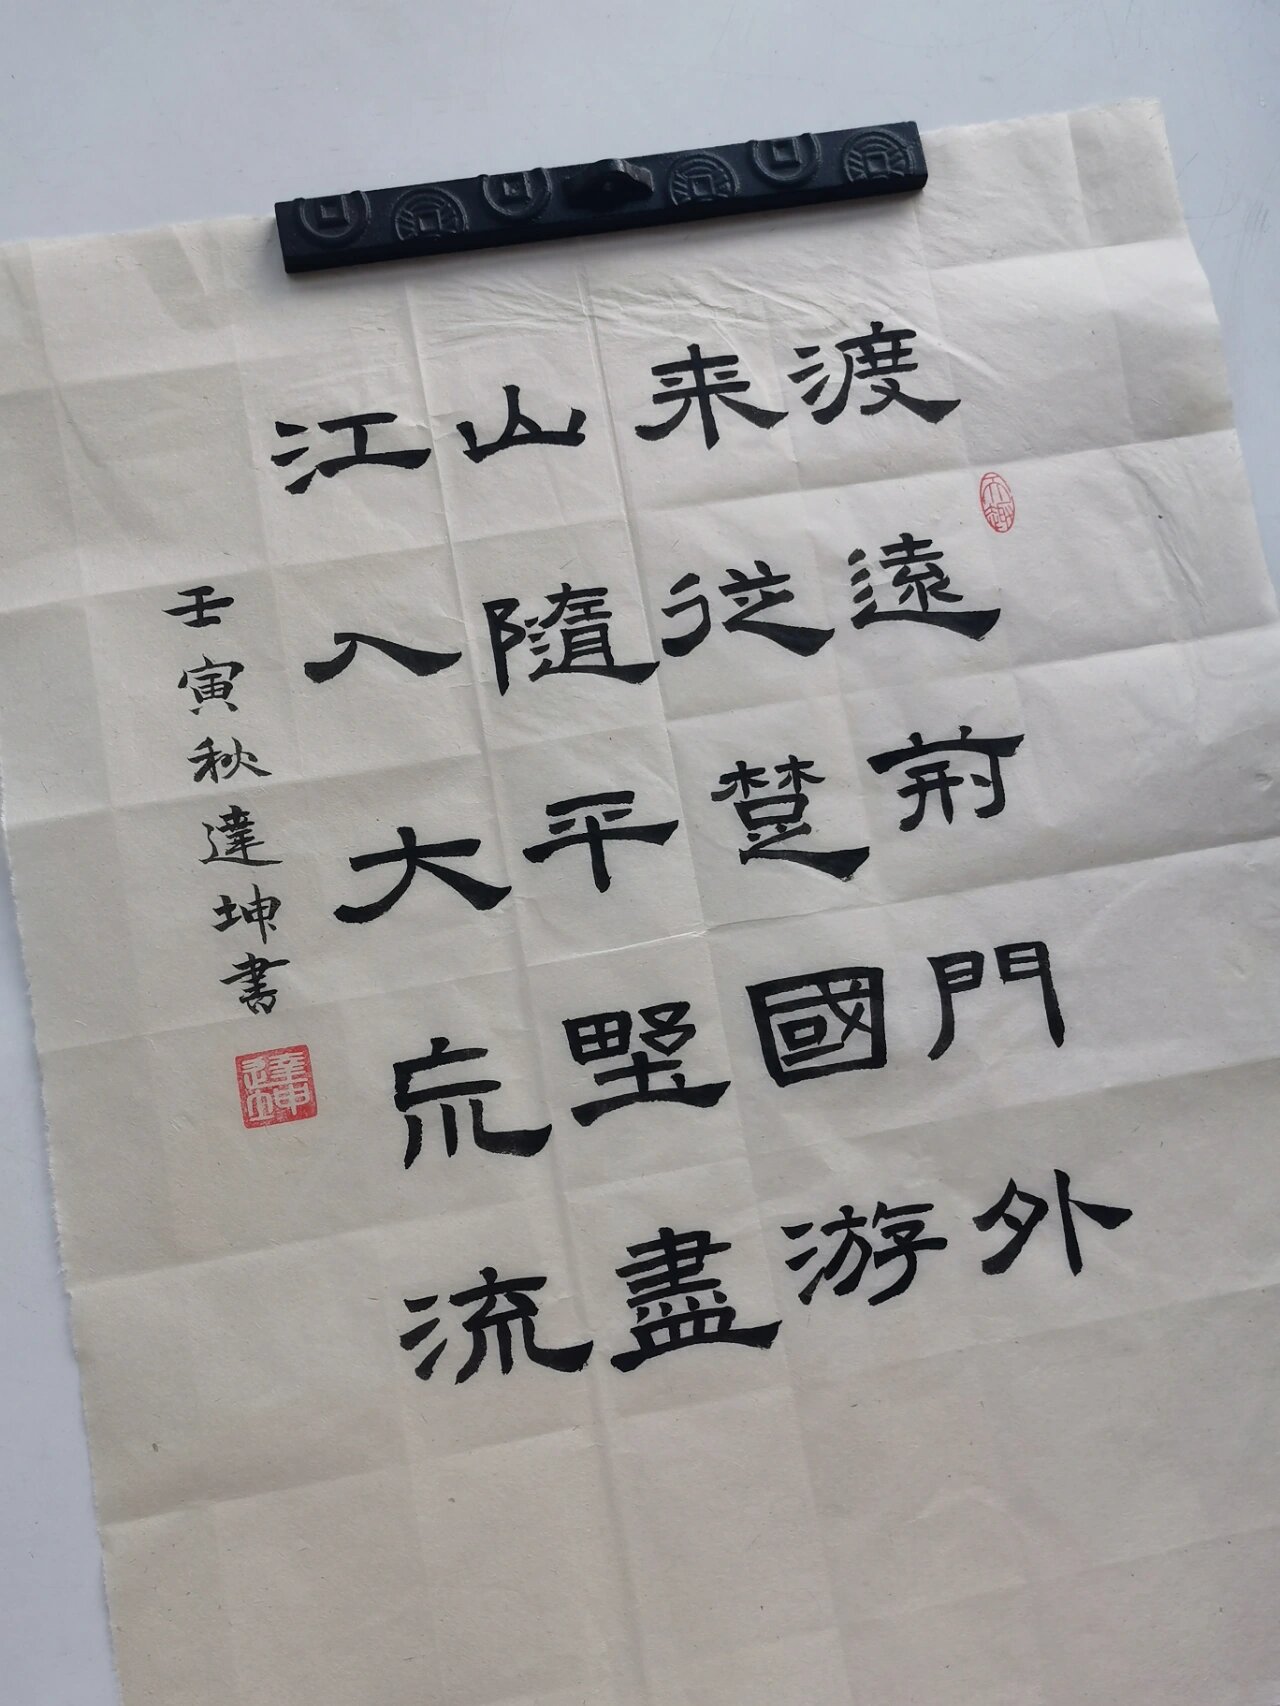 渡遠荊門外
来從楚國游
山隨平野盡
江入大荒流
壬寅秋達坤書
達坤